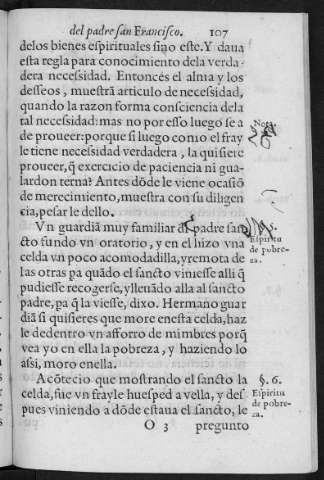 del padre san Francisco. 107
delos bienes espirituales sino este. Y daua
esta regla para conocimiento dela verda-
dera necessidad. Entonces el alma y los
desseos, muestrā articulo de necessidad,
quando la razon forma consciencia dela
tal necessidad: mas no por esso luego se a
de proueer: porque si luego como el frayle
le tiene necessidad verdadera, la quisiere
proueer, q̄ exercicio de paciencia ni gua-
lardon terna? Antes dōde le viene ocasiō
de merecimiento, muestra con su diligen
cia, pesar le dello.
Vn guardiā muy familiar del padre san
cto fundo vn oratorio, y en el hizo vna
celda vn poco acomodadilla, y remota de
las otras pa quādo el sancto viniesse alli q̄
pudiesse recogerse, y lleuādo alla al sancto
padre, pa q̄ la viesse, dixo. Hermano guar
diā si quisieres que more en esta celda, haz
le de dentro vn afforro de mimbres porq̄
vea yo en ella la pobreza, y haziendo lo
assi, moro en ella.
Acōtecio que mostrando el sancto la
celda, fue vn frayle huesped a vella, y des
pues viniendo a dōde estaua el sancto, le
O 3 pregunto
Nota
Espiritu
de pobre-
za.
§. 6.
Espiritu
de pobre-
za.